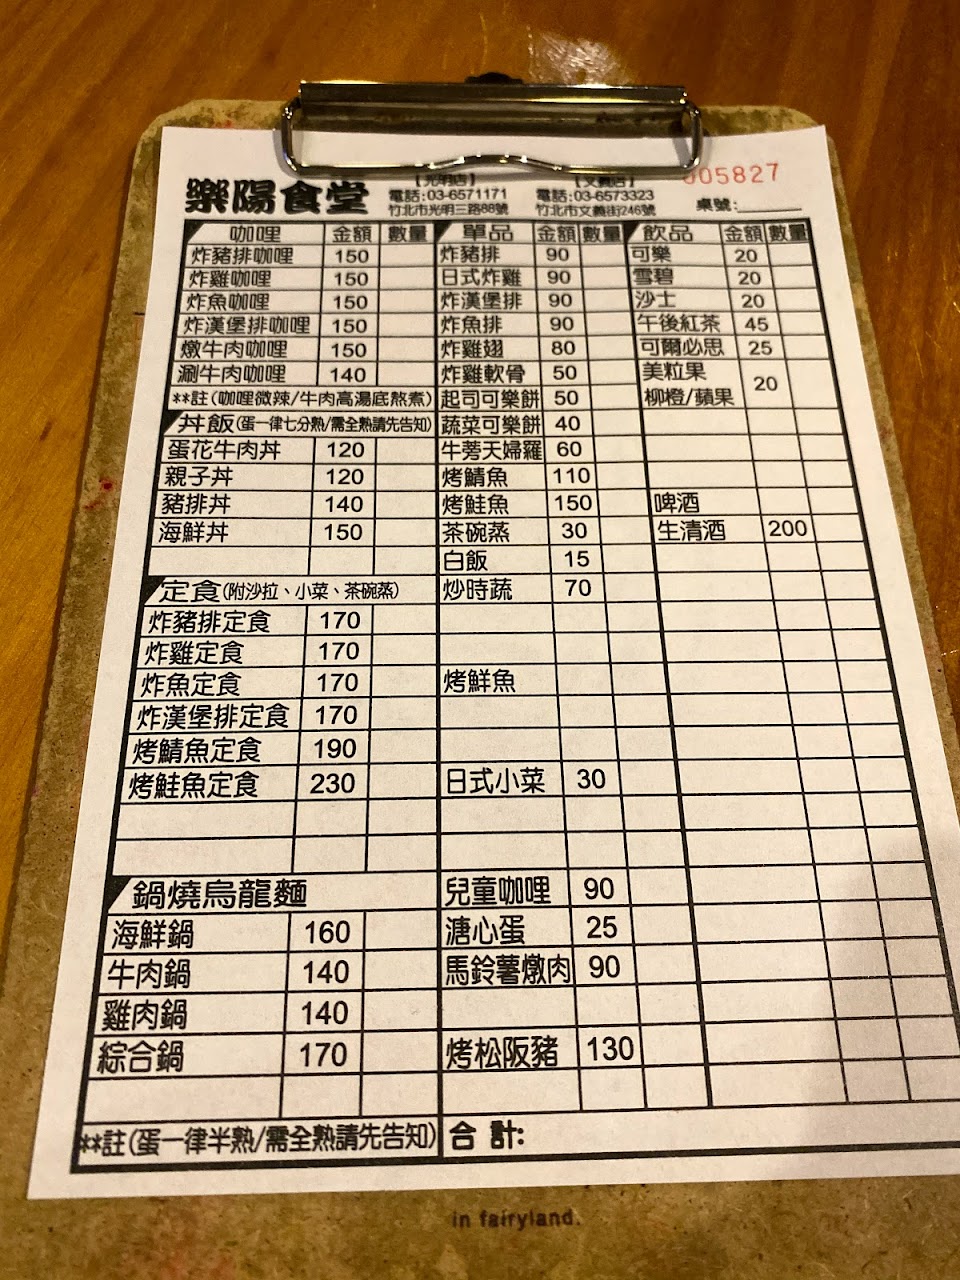 樂陽食堂
【光明店】
電話:03-6571171
竹北市光明三路88號
【文義店】
電話:03-6573323
竹北市文義街246號
005827
桌號:
咖哩 金額 數量
炸豬排咖哩 150
炸雞咖哩 150
炸魚咖哩 150
炸漢堡排咖哩 150
燉牛肉咖哩 150
涮牛肉咖哩 140
**註(咖哩微辣/牛肉高湯底熬煮)
丼飯(蛋一律七分熟/需全熟請先告知)
蛋花牛肉丼 120
親子丼 120
豬排丼 140
海鮮丼 150
定食(附沙拉、小菜、茶碗蒸)
炸豬排定食 170
炸雞定食 170
炸魚定食 170
炸漢堡排定食 170
烤鯖魚定食 190
烤鮭魚定食 230
鍋燒烏龍麵
海鮮鍋 160
牛肉鍋 140
雞肉鍋 140
綜合鍋 170
**註(蛋一律半熟/需全熟請先告知)
單品 金額 數量
炸豬排 90
日式炸雞 90
炸漢堡排 90
炸魚排 90
炸雞翅 80
炸雞軟骨 50
起司可樂餅 50
蔬菜可樂餅 40
牛蒡天婦羅 60
烤鯖魚 110
烤鮭魚 150
茶碗蒸 30
白飯 15
炒時蔬 70
烤鮮魚
日式小菜 30
兒童咖哩 90
溏心蛋 25
馬鈴薯燉肉 90
烤松阪豬 130
合 計:
飲品 金額 數量
可樂 20
雪碧 20
沙士 20
午後紅茶 45
可爾必思 25
美粒果
柳橙/蘋果 20
啤酒
生清酒 200
in fairyland.